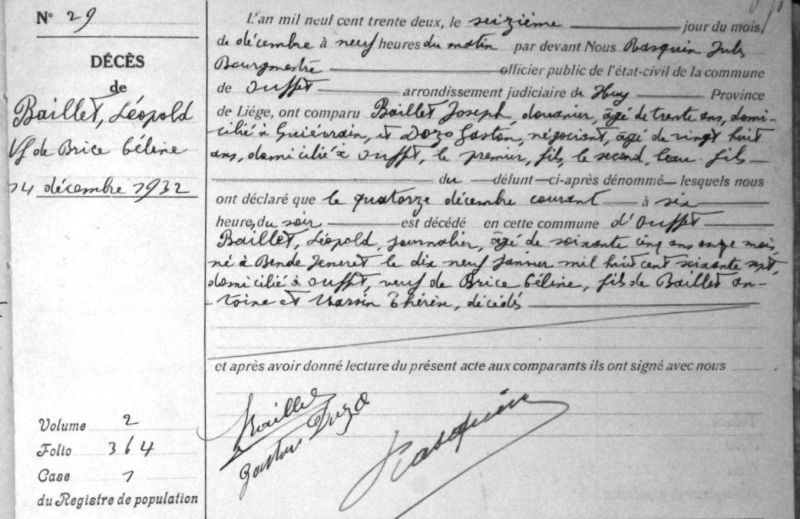 N° 29
DÉCÈS
de
Baillet, Léopold
Vf de Brice Céline
14 décembre 1932
Volume 2
Folio 364
Case 1
du Registre de population
L'an mil neuf cent trente deux, le seizième jour du mois
de décembre à neuf heures du matin par devant Nous Rasquin Jules
Bourgmestre officier public de l'état-civil de la commune
de Ouffet arrondissement judiciaire de Huy Province
de Liége, ont comparu Baillet Joseph, douanier, âgé de trente ans, domi-
cilié à et Dozo Gaston, négociant, âgé de vingt huit
ans, domicilié à Ouffet, le premier, fils, le second, beau-fils
du défunt ci-après dénommé lesquels nous
ont déclaré que le quatorze décembre courant à six
heures du soir est décédé en cette commune d'Ouffet
Baillet, Léopold, journalier, âgé de soixante cinq ans onze mois,
né à Bende Jeneret le dix neuf janvier mil huit cent soixante sept,
domicilié à Ouffet, veuf de Brice Céline, fils de Baillet An-
toine et Thérèse, décédés
et après avoir donné lecture du présent acte aux comparants ils ont signé avec nous
Baillet
Gaston Dozo
Rasquin